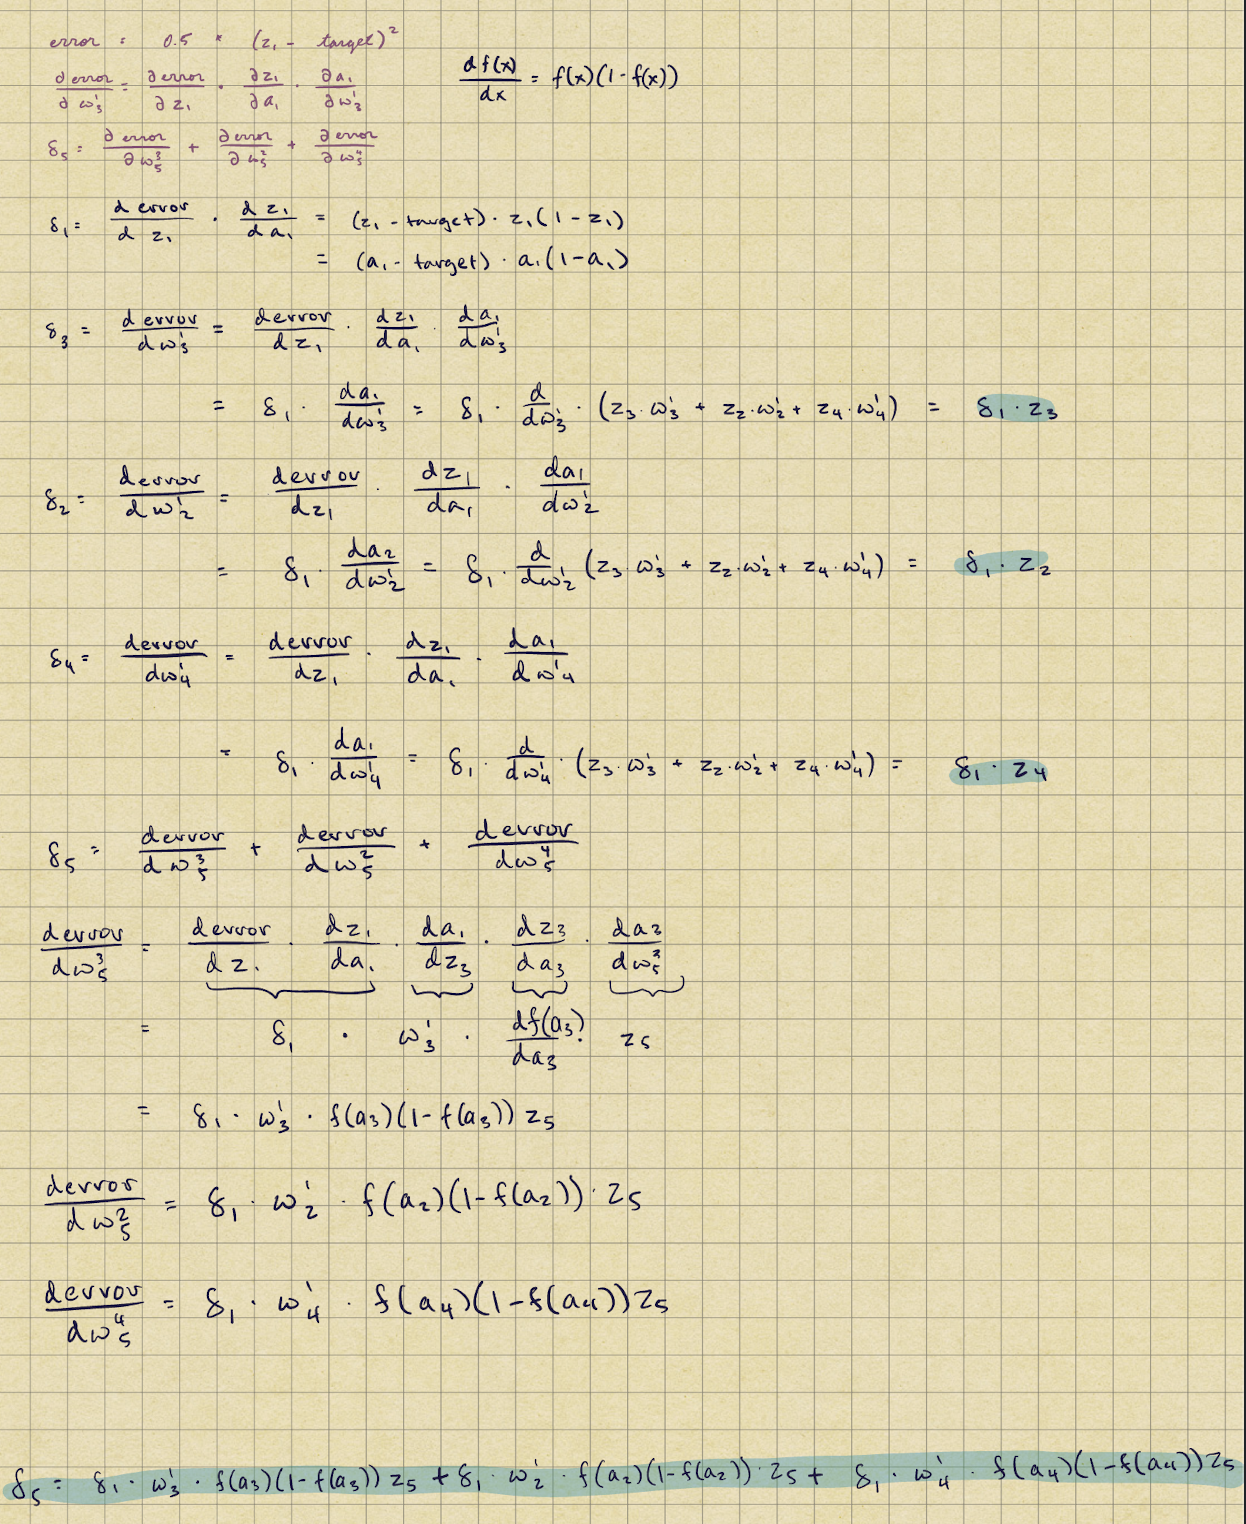 error = 0.5 * (z₁ - target)²
∂error/∂ω₃¹ = ∂error/∂z₁ · ∂z₁/∂a₁ · ∂a₁/∂ω₃¹
df(x)/dx = f(x)(1-f(x))
δ₅ = ∂error/∂ω₅³ + ∂error/∂ω₅² + ∂error/∂ω₅⁴
δ₁ = d error/d z₁ · d z₁/d a₁ = (z₁ - target) · z₁(1-z₁)
= (a₁ - target) · a₁(1-a₁)
δ₃ = d error/dω₃¹ = d error/dz₁ · dz₁/da₁ · da₁/dω₃¹
= δ₁ · da₁/dω₃¹ = δ₁ · d/dω₃¹ · (z₃·ω₃¹ + z₂·ω₂¹ + z₄·ω₄¹) = δ₁ · z₃
δ₂ = d error/dω₂¹ = d error/dz₁ · dz₁/da₁ · da₁/dω₂¹
= δ₁ · da₂/dω₂¹ = δ₁ · d/dω₂¹ (z₃·ω₃¹ + z₂·ω₂¹ + z₄·ω₄¹) = δ₁ · z₂
δ₄ = d error/dω₄¹ = d error/dz₁ · dz₁/da₁ · da₁/dω₄¹
= δ₁ · da₁/dω₄¹ = δ₁ · d/dω₄¹ · (z₃·ω₃¹ + z₂·ω₂¹ + z₄·ω₄¹) = δ₁ · z₄
δ₅ = d error/dω₅³ + d error/dω₅² + d error/dω₅⁴
d error/dω₅³ = d error/dz₁ · dz₁/da₁ · da₁/dz₃ · dz₃/da₃ · da₃/dω₅³
= δ₁ · ω₃¹ · df(a₃)/da₃ · z₅
= δ₁ · ω₃¹ · f(a₃)(1-f(a₃)) z₅
d error/dω₅² = δ₁ · ω₂¹ · f(a₂)(1-f(a₂)) · z₅
d error/dω₅⁴ = δ₁ · ω₄¹ · f(a₄)(1-f(a₄)) z₅
δ₅ = δ₁ · ω₃¹ · f(a₃)(1-f(a₃)) z₅ + δ₁ · ω₂¹ · f(a₂)(1-f(a₂)) · z₅ + δ₁ · ω₄¹ · f(a₄)(1-f(a₄)) z₅